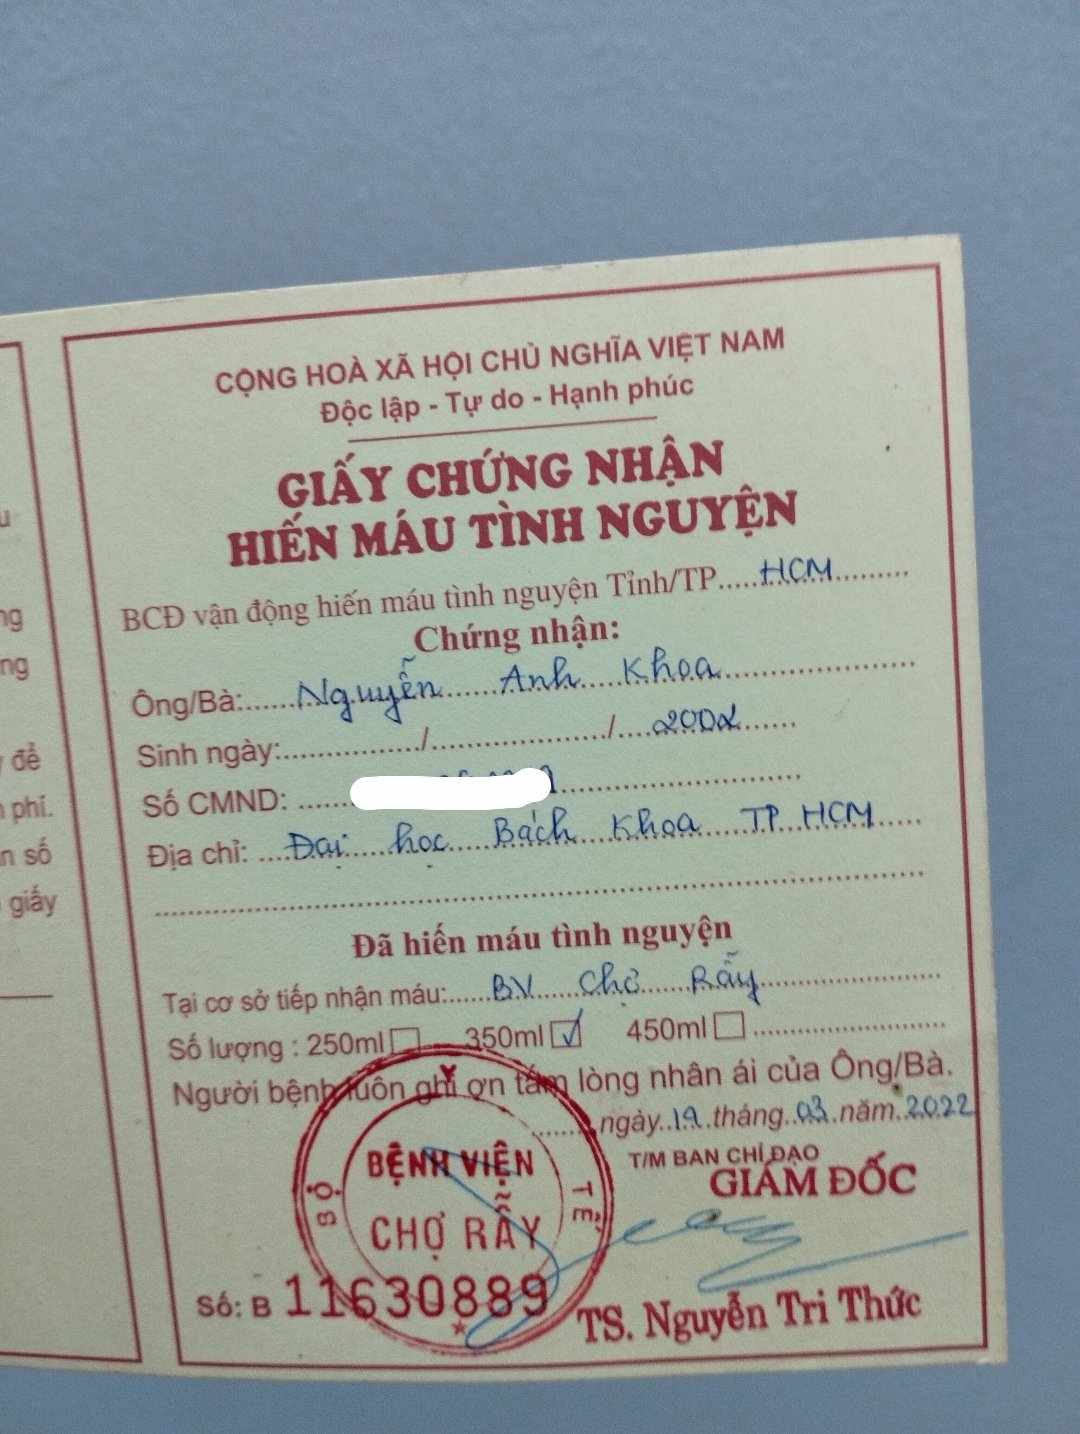 u
ng
ng
để
phí.
n số
giấy
CỘNG HOÀ XÃ HỘI CHỦ NGHĨA VIỆT NAM
Độc lập - Tự do - Hạnh phúc
GIẤY CHỨNG NHẬN
HIẾN MÁU TÌNH NGUYỆN
BCĐ vận động hiến máu tình nguyện Tỉnh/TP.....HCM..........
Chứng nhận:
Ông/Bà:......Nguyễn......Anh.....Khoa.....................
Sinh ngày:................/...................../....2002.......
Số CMND: ......
Địa chỉ: ....Đại....học....Bách....Khoa....TP.HCM.....
Đã hiến máu tình nguyện
Tại cơ sở tiếp nhận máu:.....BV.....Chợ.....Rẫy....................
Số lượng : 250ml☐ 350ml☑ 450ml☐......................
Người bệnh luôn ghi ơn tấm lòng nhân ái của Ông/Bà.
........ngày..19.tháng..03.năm..2022
T/M BAN CHỈ ĐẠO
GIÁM ĐỐC
BỘ Y TẾ
BỆNH VIỆN
CHỢ RẪY
Số: B 11630889
TS. Nguyễn Tri Thức